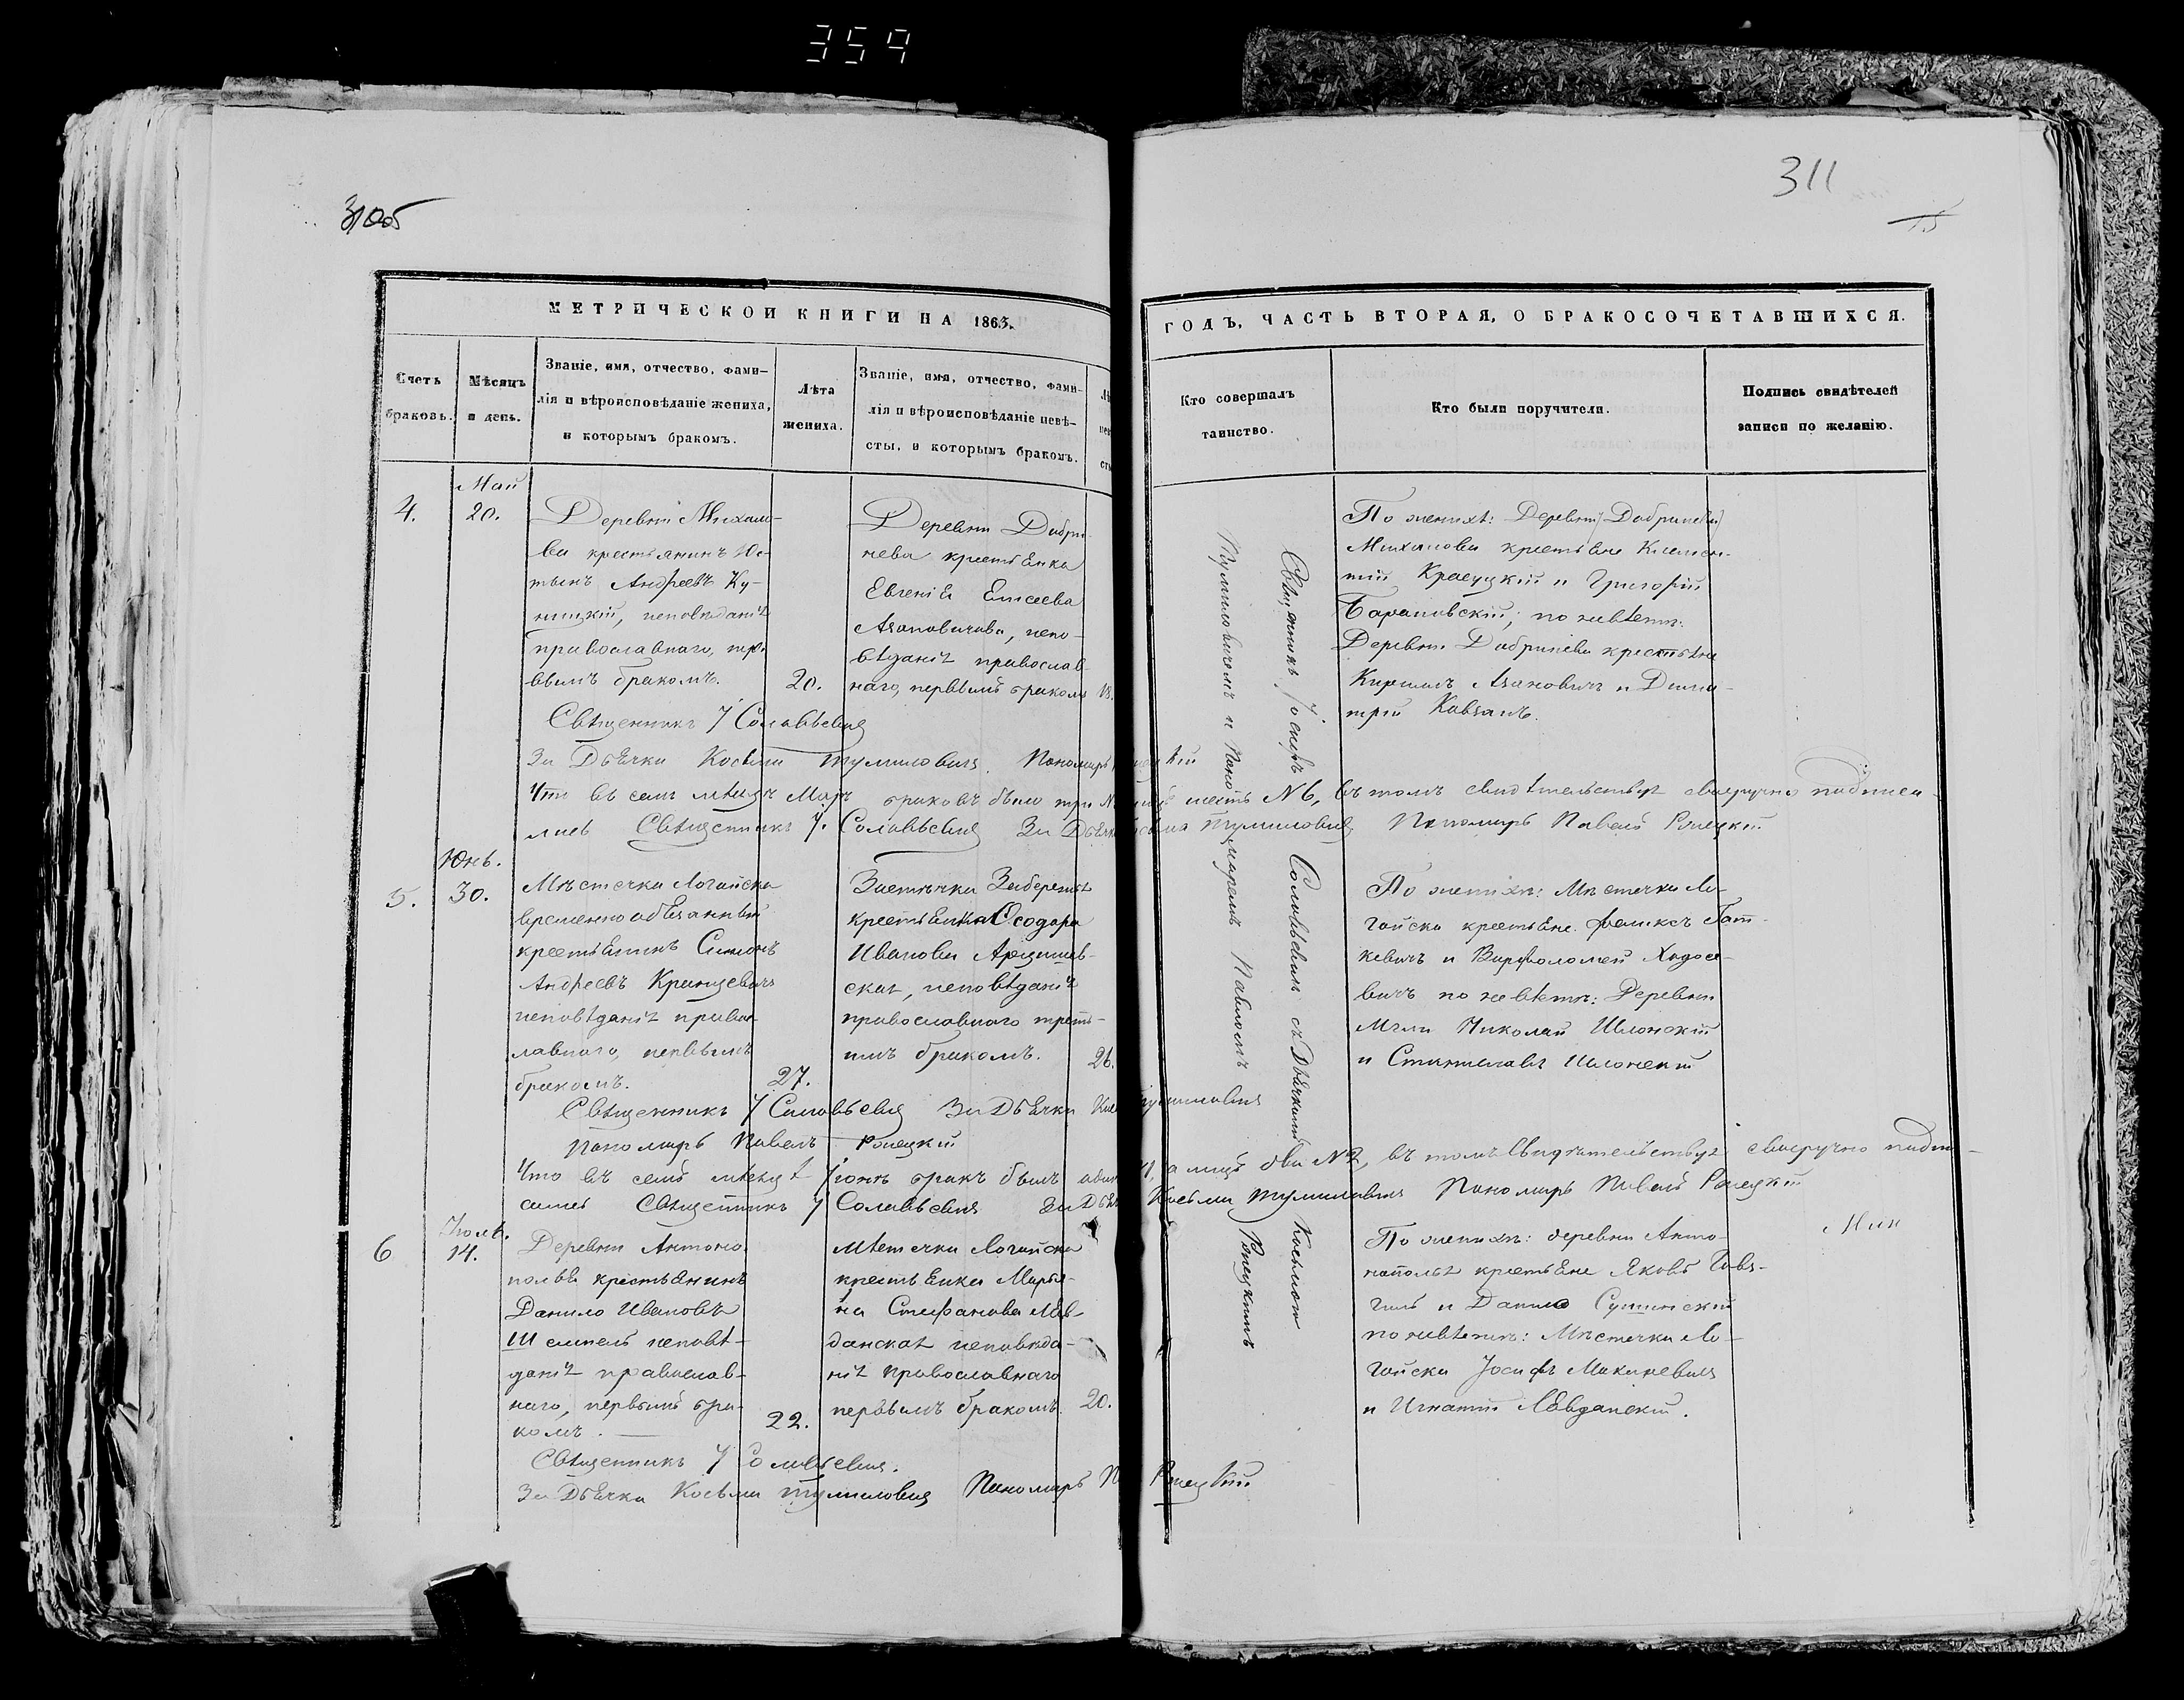 359
310об
311
15
МЕТРИЧЕСКОЙ КНИГИ НА 1863.
ГОДЪ, ЧАСТЬ ВТОРАЯ, О БРАКОСОЧЕТАВШИХСЯ.
Счетъ
браковъ.
Мѣсяцъ
и день.
Званіе, имя, отчество, фами-
лія и вѣроисповѣданіе жениха,
и которымъ бракомъ.
Лѣта
жениха.
Званіе, имя, отчество, фами-
лія и вѣроисповѣданіе невѣ-
сты, и которымъ бракомъ.
Кто совершалъ
таинство.
Кто были поручители.
Подпись свидѣтелей
записи по желанію.
4.
Май
20.
Деревни Михало-
ва крестьянинъ Юс-
тынъ Андреевъ Ку-
ницкій, исповѣданія
православнаго, пер-
вымъ бракомъ.
20.
Деревни Добри-
нева крестьянка
Евгенія Елисеева
Азановичова, испо-
вѣданія православ-
наго, первымъ бракомъ
18.
По женихѣ: Деревни Добринева
Михалова крестьяне
Красуцкій и Григорій
Барановскій; по невѣстѣ:
Деревни Добринева крестьяне
Кирилъ Азановичъ и Дими-
трій Кавзанъ.
Священникъ І Соловьевичъ
За Дьячка Косьма Тумиловичъ. Пономарь
Что въ семъ мѣсяцѣ Маѣ браковъ было три шесть №6, въ томъ свидѣтельствуя своеручно подписа-
лись Священникъ І. Соловьевичъ За Дьячка Косьма Тумиловичъ Пономарь Павелъ Ржецкій
5.
Юнь.
30.
Мѣстечка Логойска
временнообязанный
крестьянинъ Симонъ
Андреевъ Кранцевичъ
исповѣданія правос-
лавнаго, первымъ
бракомъ.
27.
Застѣнка Забережя
крестьянка Ѳеодора
Иванова Арцишев-
ская, исповѣданія
православнаго треть-
имъ бракомъ.
26.
По женихѣ: Мѣстечка Ло-
гойска крестьяне Феликсъ Гат-
кевичъ и Варфоломей Ходосе-
вичъ по невѣстѣ: Деревни
Мгли Николай Шлонскій
и Станиславъ Шлонскій
Священникъ І Соловьевичъ За Дьячка Тумиловичъ
Пономарь Павелъ Ржецкій
Что въ семъ мѣсяцѣ Іюнѣ бракъ былъ одинъ, а лицъ два №2, въ томъ свидѣтельствуя своеручно подпи-
сались Священникъ І Соловьевичъ За Дьячка Косьма Тумиловичъ Пономарь Павелъ Ржецкій
6
Іюль.
14.
Деревни Антоно-
полья крестьянинъ
Данило Ивановъ
Шемпель исповѣ-
данія православ-
наго, первымъ бра-
комъ.
22.
Мѣстечка Логойска
крестьянка Марья-
на Стефанова Лев-
данская исповѣда-
нія православнаго
первымъ бракомъ.
20.
По женихѣ: деревни Анто-
нополья крестьяне Яковъ
и Данило Сушинскій
по невѣстѣ: Мѣстечка Ло-
гойска Іосифъ Макаревичъ
и Игнатій Левданскій.
Священникъ І Соловьевичъ.
За Дьячка Косьма Тумиловичъ Пономарь П Ржецкій
Священникъ Іосифъ Соловьевичъ съ Дьячкомъ Косьмою
Тумиловичемъ и Пономаремъ Павломъ Ржецкимъ